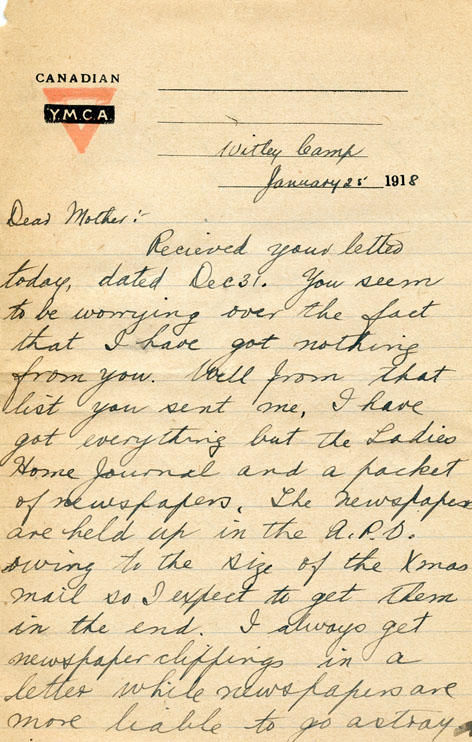 CANADIAN
Y.M.C.A.
Witley Camp
January 25 1918
Dear Mother:-
Recieved your letter
today, dated Dec 31. You seem
to be worrying over the fact
that I have got nothing
from you. Well from that
list you sent me, I have
got everything but the Ladies
Home Journal and a packet
of newspapers. The newspapers
are held up in the A.P.O.
owing to the size of the Xmas
mail so I expect to get them
in the end. I always get
newspaper clippings in a
letter while newspapers are
more liable to go astray